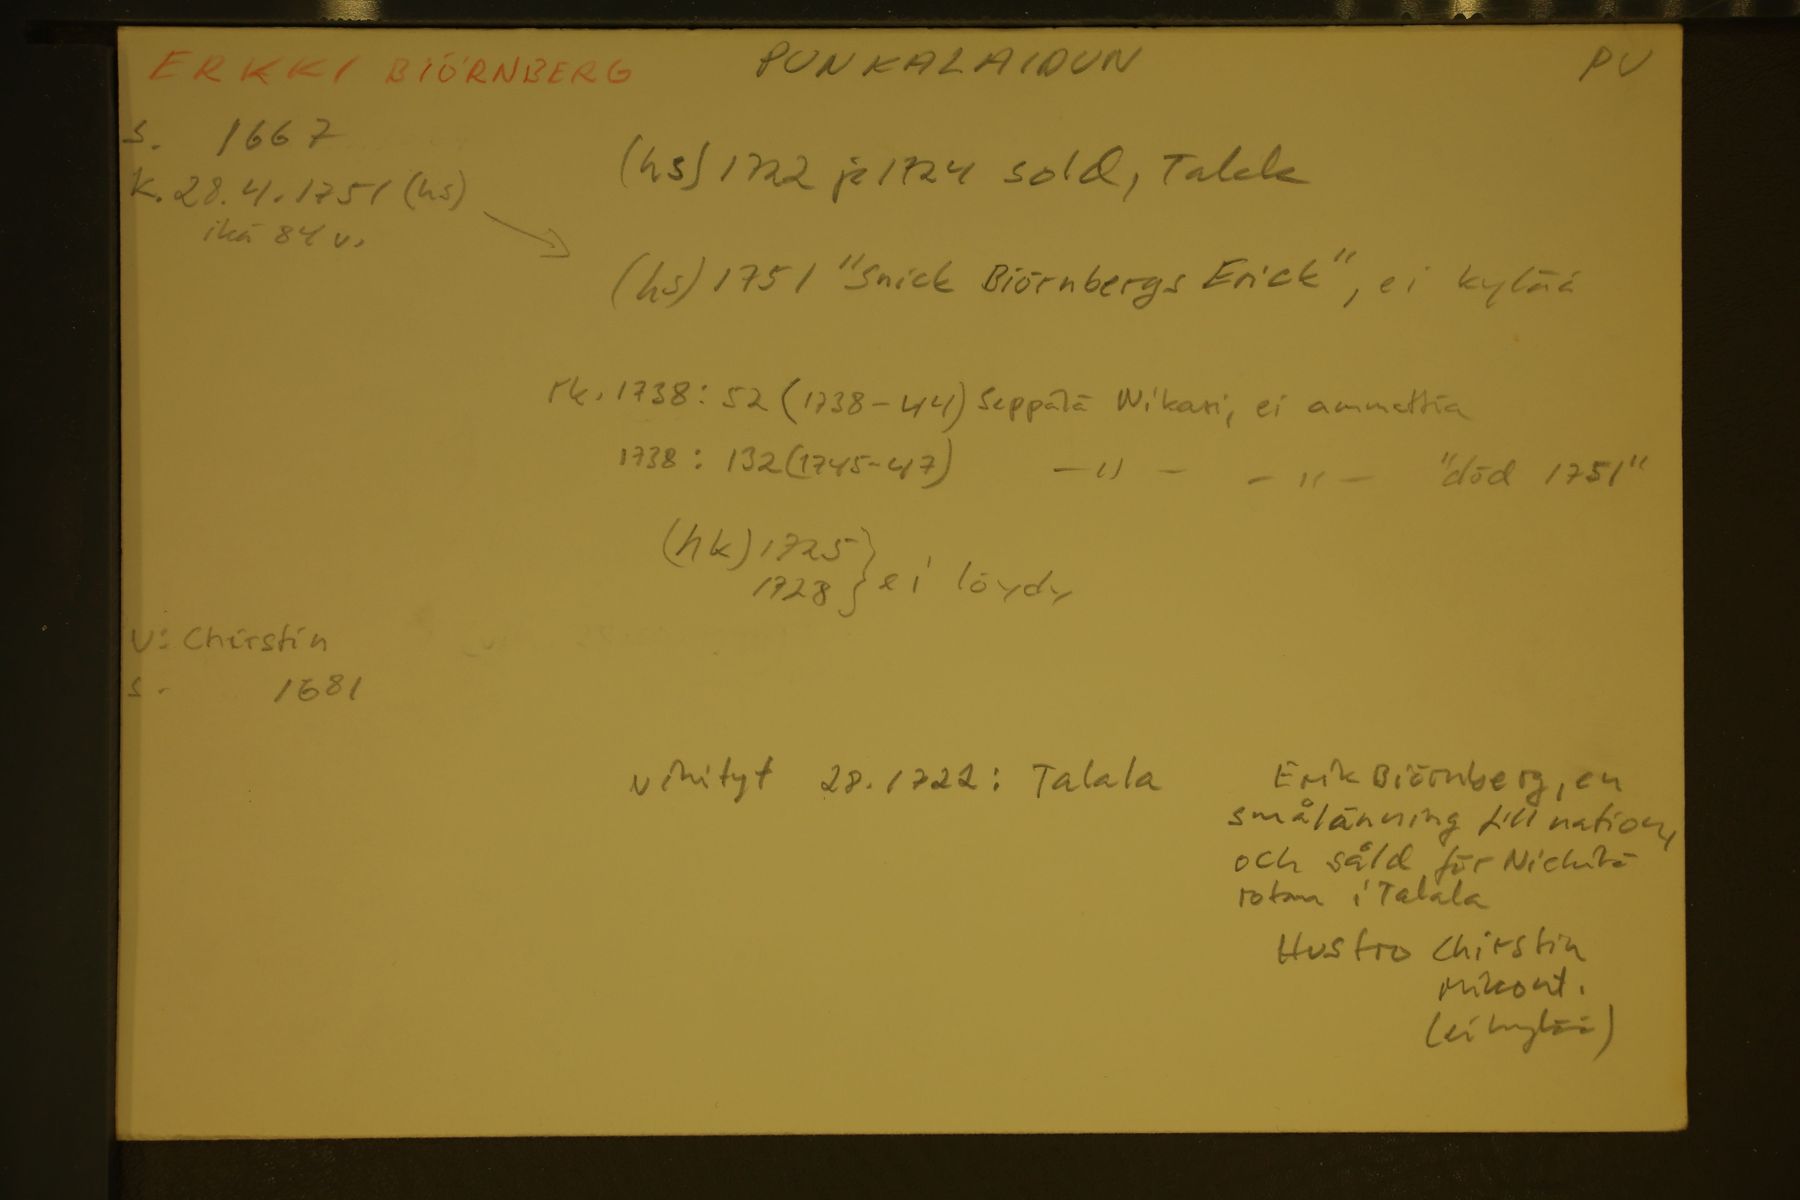 ERKKI BIÖRNBERG PUNKALAIDUN PU
s. 1667
k. 28.4.1751 (hs)
ikä 84 v.
(hs) 1722 ja 1724 sold, Talala
(hs) 1751 "Snick Biörnbergs Erick", ei kylää
rk. 1738: 52 (1738-44) Seppälä Nikari, ei ammattia
1738: 132 (1745-47) -"- -"- "död 1751"
(hk) 1725
1728 } ei löydy
V: Chirstin
s. 1681
vihityt 28.1722: Talala
Erik Biörnberg, en
smålänning till nation,
och såld för
rotan i Talala
Hustro Chirstin
(ei kylää)